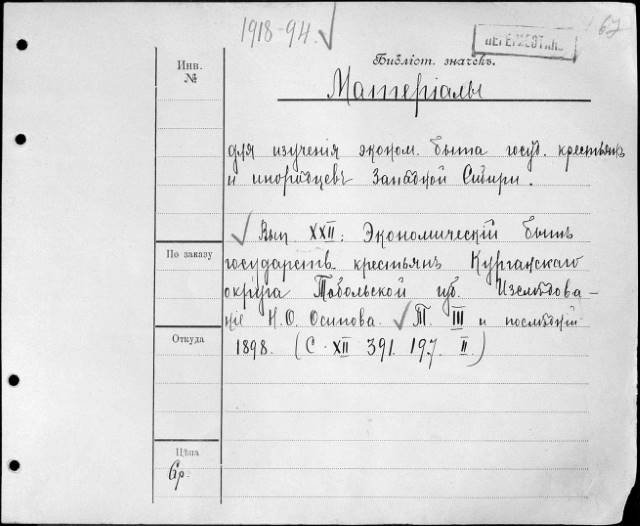 1918-94. √
67
Инв.
№
Библіот. значекъ.
Матеріалы
для изученія эконом. быта госуд. крестьянъ
и инородцевъ Западной Сибири.
√ Вып. XXII: Экономическій бытъ
По заказу
государств. крестьянъ Курганскаго
округа Тобольской губ. Изслѣдова-
ніе Н. О. Осипова. √ Т. III и послѣдній
Откуда
1898. (С. XII 391. 197. II.)
Цѣна
6р.